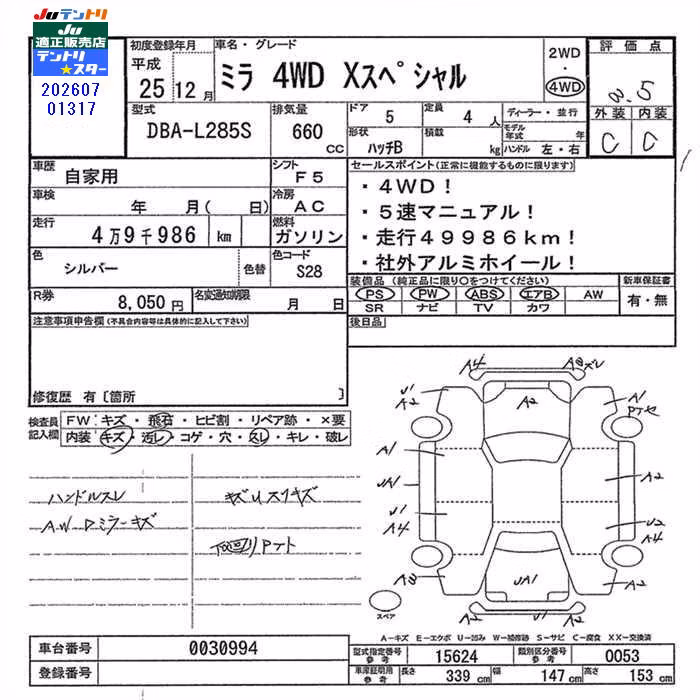 JUテントリ
JU
適正販売店
テントリ
★スター
202607
01317
初度登録年月
平成
25 12 月
車名・グレード
ミラ 4WD Xスペシャル
2WD
・
4WD
評価点
3.5
外装 内装
C C
型式
DBA-L285S
排気量
660 cc
ドア 5
定員 4 人
ディーラー・並行
モデル年式 年
形状 ハッチB
積載 kg
ハンドル 左・右
車歴
自家用
シフト
F5
車検
年 月( 日)
冷房
AC
走行
4万9千986 km
燃料
ガソリン
色
シルバー
色替
色コード
S28
R券
8,050 円
名変通知期限
月 日
セールスポイント(正常に機能するものに限ります)
・4WD!
・5速マニュアル!
・走行49986km!
・社外アルミホイール!
装備品(純正品に限り○をつけてください)
新車保証書
PS PW ABS エアB AW
SR ナビ TV カワ
有・無
後日品
注意事項申告欄(不具合内容等は具体的に記入して下さい)
修復歴 有〔箇所 〕
検査員記入欄
FW:キズ・飛石・ヒビ割・リペア跡・×要
内装:キズ・汚レ・コゲ・穴・スレ・キレ・破レ
ハンドルスレ
キズUスリキズ
A.W Dミラーキズ
下回りPテト
A4
A8ズレ
U1
A2
A2
A1
PTセ
A1
UA1
U1
A4
A2
U2
A4
A8
UA1
A2
A2
スペア
A-キズ E-エクボ U-凹み W-補修跡 S-サビ C-腐食 XX-交換済
車台番号
0030994
型式指定番号 参考
15624
類別区分番号 参考
0053
登録番号
車庫証明用 参考
長さ 339 cm
幅 147 cm
高さ 153 cm